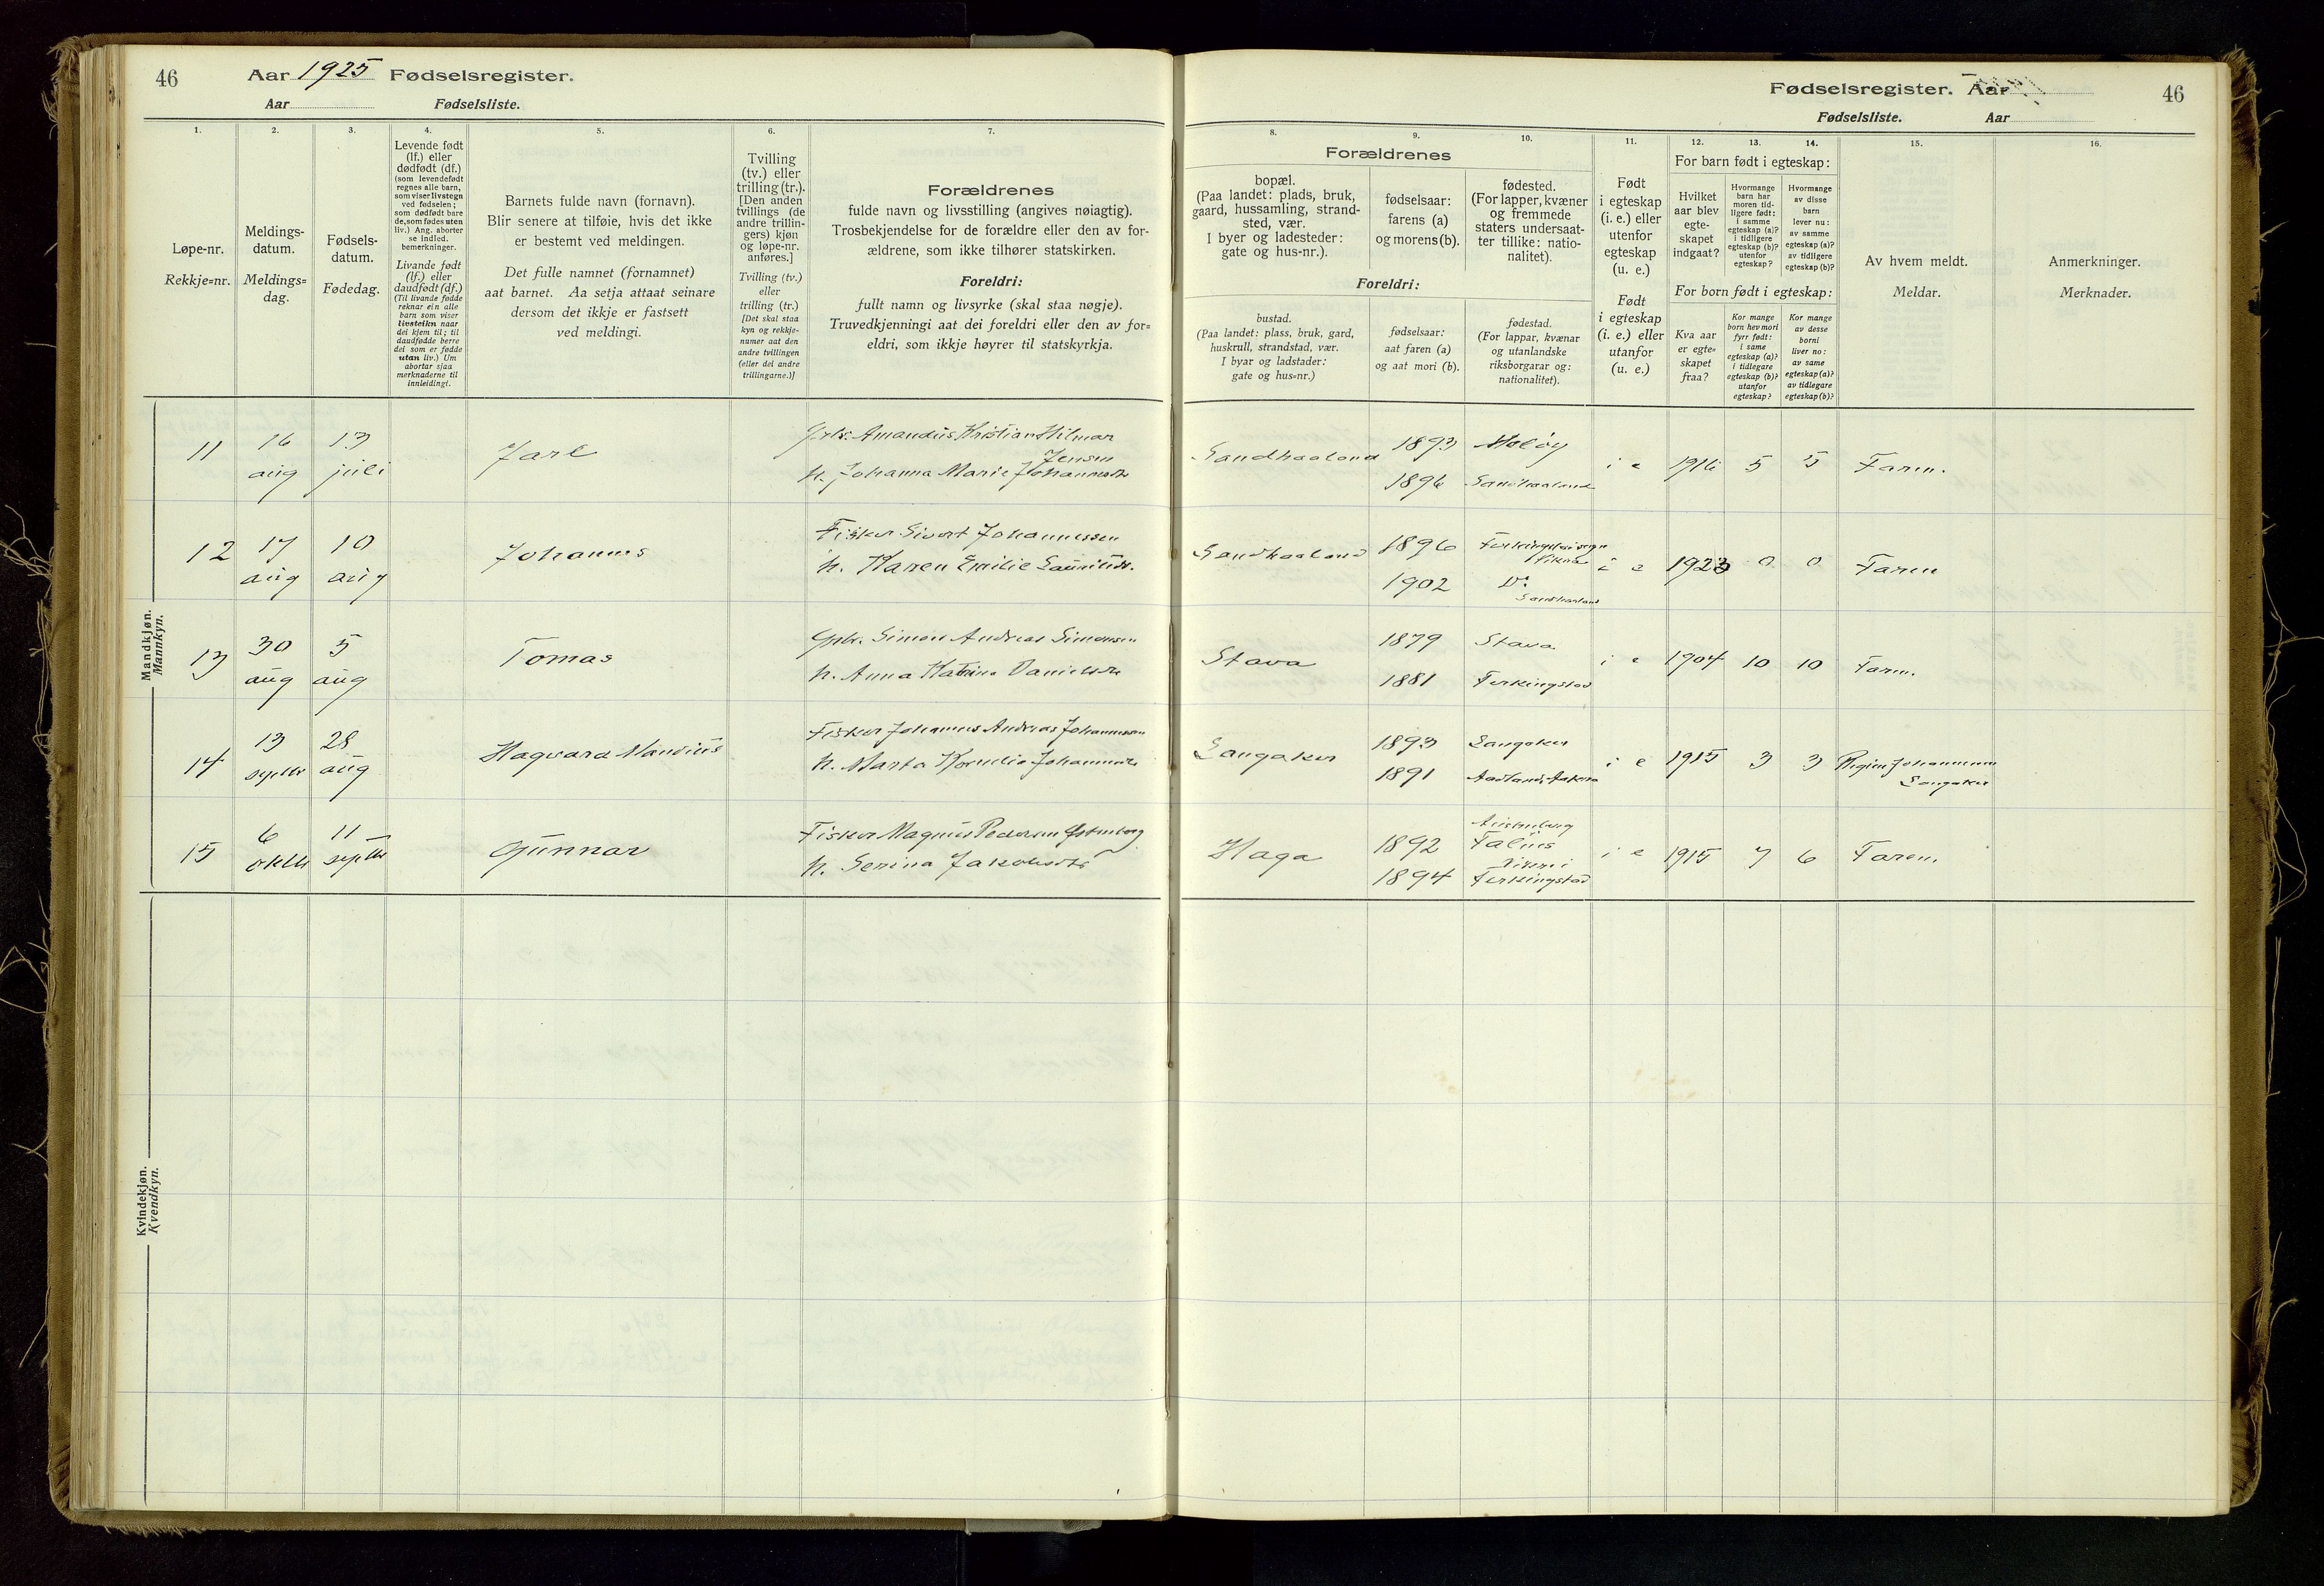 46
Aar 1925 Fødselsregister.
Aar Fødselsliste.
1.
2.
3.
4.
5.
6.
7.
Løpe-nr.
Rekkje=nr.
Meldings-
datum.
Meldings=
dag.
Fødsels-
datum.
Fødedag.
Levende født
(lf.) eller
dødfødt (df.)
(som levendefødt
regnes alle barn,
som viser livstegn
ved fødselen;
som dødfødt bare
de, som fødes uten
liv.) Ang. aborter
se indled.
bemerkninger.
Livande født
(lf.) eller
daudfødt (df.)
(Til livande fødde
reknar ein alle
barn som viser
livsteikn naar
dei kjem til; til
daudfødde berre
dei som er fødde
utan liv.) Um
abortar sjaa
merknaderne til
innleidingi.
Barnets fulde navn (fornavn).
Blir senere at tilføie, hvis det ikke
er bestemt ved meldingen.
Det fulle namnet (fornamnet)
aat barnet. Aa setja attaat seinare
dersom det ikkje er fastsett
ved meldingi.
Tvilling
(tv.) eller
trilling (tr.).
[Den anden
tvillings (de
andre trillin-
gers) kjøn
og løpe-nr.
anføres.]
Tvilling (tv.)
eller
trilling (tr.)
[Det skal staa
kyn og rekkje-
numer aat den
andre tvillingen
(eller dei andre
trillingarne.)]
Forældrenes
fulde navn og livsstilling (angives nøiagtig).
Trosbekjendelse for de forældre eller den av for-
ældrene, som ikke tilhører statskirken.
Foreldri:
fullt namn og livsyrke (skal staa nøgje).
Truvedkjenningi aat dei foreldri eller den av for=
eldri, som ikkje høyrer til statskyrkja.
Mandkjøn.
Mannkyn.
11
16
aug
13
juli
Jarl
Amandus Kristian Hilmar
Jensen
h. Johanna Marie Johannesdtr
12
17
aug
10
aug
Johannes
Fisker Sivert Johannessen
h. Karen Emilie
13
30
aug
5
aug
Tomas
Gpbr. Simon Andreas Simonsen
h. Anna Katrine Danielsdtr
14
13
septbr
28
aug
Hagvard Mandius
Fisker Johannes Andreas Johannessen
h. Marta Kornelie Johannesdtr
15
6
oktbr
11
septbr
Gunnar
Fisker Magnus Pedersen
h. Serina Jakobsdtr
Kvindekjøn.
Kvendkyn.
Fødselsregister. Aar
46
Fødselsliste. Aar
8.
9.
10.
11.
12.
13.
14.
15.
16.
Forældrenes
bopæl.
(Paa landet: plads, bruk,
gaard, hussamling, strand-
sted, vær.
I byer og ladesteder:
gate og hus-nr.).
fødselsaar:
farens (a)
og morens (b).
fødested.
(For lapper, kvæner
og fremmede
staters undersaat-
ter tillike: natio-
nalitet).
Foreldri:
bustad.
(Paa landet: plass, bruk, gard,
huskrull, strandstad, vær.
I byar og ladstader:
gate og hus=nr.)
fødselsaar:
aat faren (a)
og aat mori (b).
fødestad.
(For lappar, kvænar
og utanlandske
riksborgarar og:
nationalitet).
Født
i egteskap
(i. e.) eller
utenfor
egteskap
(u. e.)
Født
i egteskap
(i. e.) eller
utanfor
egteskap
(u. e.)
For barn født i egteskap:
Hvilket
aar blev
egte-
skapet
indgaat?
Hvormange
barn har
moren tid-
ligere født:
i samme
egteskap (a)?
i tidligere
egteskap (b)?
utenfor
egteskap?
Hvormange
av disse
barn
lever nu:
av samme
egteskap (a)?
av tidligere
egteskap (b)?
For born født i egteskap:
Kva aar
er egte=
skapet
fraa?
Kor mange
born hev mori
fyrr født:
i same
egteskap (a)?
i tidlegare
egteskap (b)?
utanfor
egteskap?
Kor mange
av desse
borni
liver no:
av same
egteskap (a)?
av tidlegare
egteskap (b)?
Av hvem meldt.
Meldar.
Anmerkninger.
Merknader.
Sandhaaland
1893
1896
Moløy
Sandhaaland
i e
1916
5
5
Faren.
Sandhaaland
1896
1902
Do
Sandhaaland
i e
1923
0
0
Faren
Stava
1879
1881
Stava
Ferkingstad
i e
1904
10
10
Faren.
Langaker
1893
1891
Langaker
Aadland, Aakra
i e
1915
3
3
Johannessen
Langaker
Haga
1892
1894
Falnes
Ferkingstad
i e
1915
7
6
Faren.